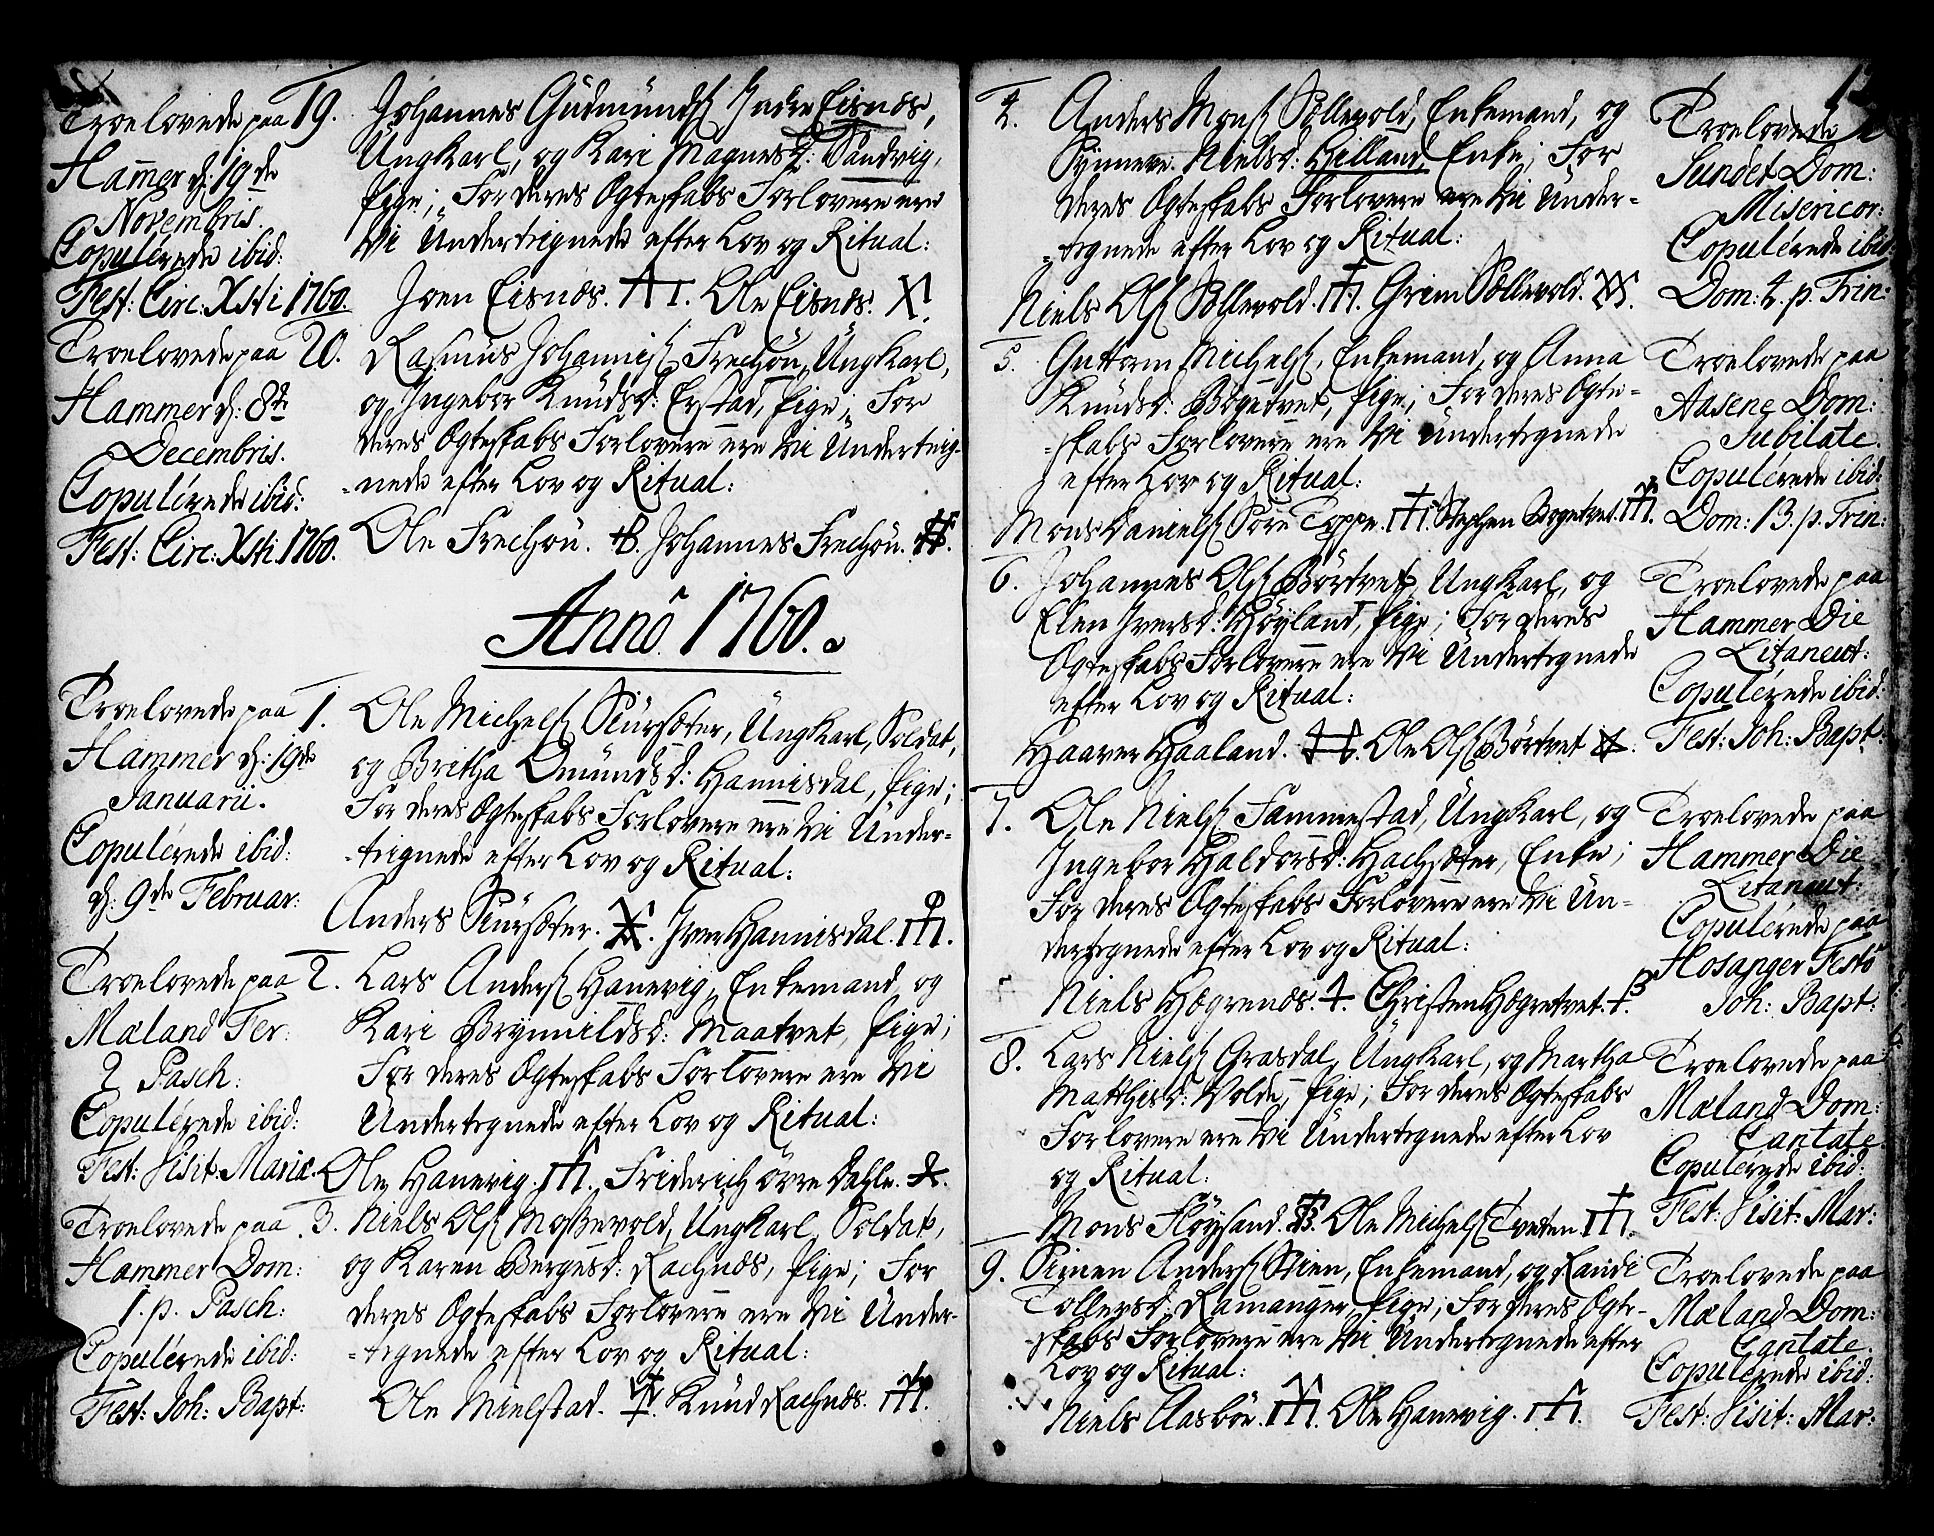 Troelovede paa
Hammer d: 19de
Novembris.
Copulérede ibid:
Fest: Circ: Xsti 1760.
19. Johannes Gudmunds. Indre Eisnæs,
Ungkarl, og Kari Magnesd: Sandvig,
Pige; For deres Ægteskabs Forlovere ere
Vi Undertegnede efter Lov og Ritual:
Joen Eisnæs. Ole Eisnæs.
Troelovede paa
Hammer d: 8de
Decembris.
Copulérede ibid:
Fest: Circ: Xsti 1760.
20. Rasmus Johannis. Frechou, Ungkarl,
og Ingebor Knudsd: Erstad, Pige; For
deres Ægteskabs Forlovere ere Vi Underteig-
-nede efter Lov og Ritual:
Ole Frechou. Johannes Frechou.
Anno 1760.
Troelovede paa
Hammer d: 19de
Januarii.
Copulérede ibid:
d: 9de Februar:
1. Ole Michels. Skursæter, Ungkarl, Soldat,
og Britha Omundsd: Hannisdal, Pige;
For deres Ægteskabs Forlovere ere Vi Under-
-teignede efter Lov og Ritual:
Anders Skursæter. Iver Hannisdal.
Troelovede paa
Mæland Fer:
2 Pasch:
Copulérede ibid:
Fest: Visit: Mariæ.
2. Lars Anders. Hanevig, Enkemand, og
Kari Brynnildsd: Maatvet, Pige;
For deres Ægteskabs Forlovere ere Vi
Undertegnede efter Lov og Ritual:
Ole Hanevig. Friderich övre Dahle.
Troelovede paa
Hammer Dom:
1. p. Pasch:
Copulérede ibid:
Fest: Joh: Bapt:
3. Niels Ols. Mossevold, Ungkarl, Soldat,
og Karen Bergesd: Rachnæs, Pige; For
deres Ægteskabs Forlovere ere Vi Under-
-tegnede efter Lov og Ritual:
Ole Mielstad. Knud Rachnæs.
4. Anders Mons. Söllevold, Enkemand, og
Synneve Nielsd: Helland, Enke; For
deres Ægteskabs Forlovere ere Vi Under-
-tegnede efter Lov og Ritual:
Niels Ols. Söllevold. Grim Söllevold.
Troelovede
Sundet Dom:
Misericor:
Copulérede ibid:
Dom: 4. p. Trin:
5. Guttorm Michels., Enkemand, og Anna
Knudsd: Bögetvet, Pige; For deres Ægte-
-skabs Forlovere ere Vi Undertegnede
efter Lov og Ritual:
Mons Daniels. Söre Toppe. Stephen Bögetvet.
Troelovede paa
Aasene Dom:
Jubilate.
Copulérede ibid:
Dom: 13. p. Trin:
6. Johannes Ols. Börtvet, Ungkarl, og
Elen Iversd: Höyland, Pige; For deres
Ægteskabs Forlovere ere Vi Undertegnede
efter Lov og Ritual:
Haaver Haaland. Ole Ols. Börtvet
Troelovede paa
Hammer Die
Litaneut:
Copulérede ibid:
Fest: Joh: Bapt:
7. Ole Niels. Sammestad, Ungkarl, og
Ingebor Haldorsd: Hachsæter, Enke;
For deres Ægteskabs Forlovere ere Vi Un-
dertegnede efter Lov og Ritual:
Niels Hægrenæs. Christen Högretvet.
Troelovede paa
Hammer Die
Litaneut:
Copulérede paa
Hosanger Festo
Joh: Bapt:
8. Lars Niels. Grasdal, Ungkarl, og Martha
Matthisd: Volde, Pige; For deres Ægteskabs
Forlovere ere Vi Undertegnede efter Lov
og Ritual:
Mons Flöysand. Ole Michels. Tveten
Troelovede paa
Mæland Dom:
Cantate
Copulérede ibid:
Fest: Visit: Mar:
9. Simen Anders. Stien, Enkemand, og Randi
Tollevsd: Ramanger, Pige; For deres Ægte-
-skabs Forlovere ere Vi Undertegnede efter
Lov og Ritual:
Niels Aasböe. Ole Hanevig.
Troelovede paa
Mæland Dom:
Cantate.
Copulérede ibid:
Fest: Visit: Mar: